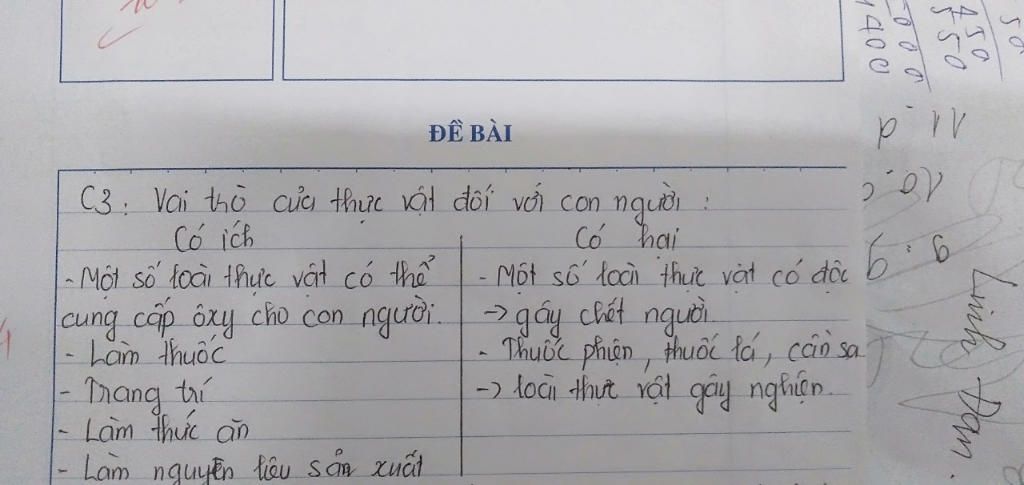 ĐỀ BÀI
C3: Vai trò của thực vật đối với con người:
Có ích
- Một số loài thực vật có thể
cung cấp ôxy cho con người.
- Làm thuốc
- Trang trí
- Làm thức ăn
- Làm nguyên liệu sản xuất
Có hại
- Một số loài thực vật có độc
-> gây chết người
- Thuốc phiện, thuốc lá, cần sa
-> loài thực vật gây nghiện.
50
450
550
000
1400
11. d
10. c
9. g
Linh Đan.